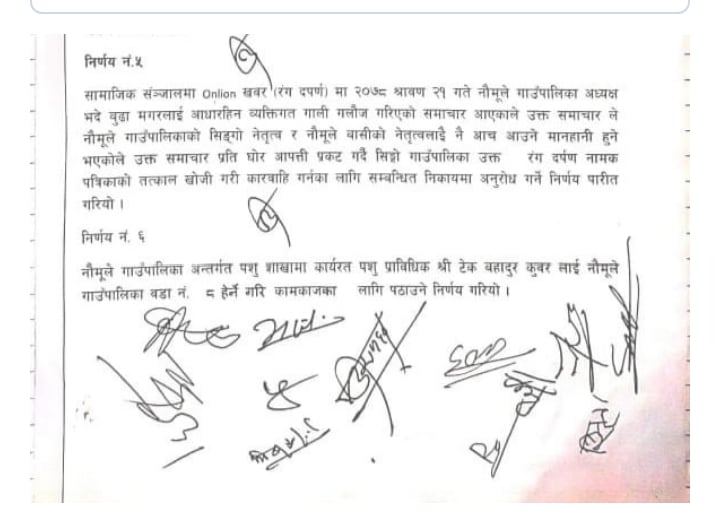 निर्णय नं.५
सामाजिक संञ्जालमा Onlion खबर (रंग दपर्ण) मा २०७८ श्रावण २१ गते नौमूले गाउँपालिका अध्यक्ष
भदे बुढा मगरलाई आधारहिन व्यक्तिगत गाली गलौज गरिएको समाचार आएकाले उक्त समाचार ले
नौमूले गाउँपालिकाको सिङ्गो नेतृत्व र नौमूले वासीको नेतृत्वलाई नै आच आउने मानहानी हुने
भएकोले उक्त समाचार प्रति घोर आपत्ती प्रकट गर्दै सिङ्गो गाउँपालिका उक्त रंग दर्पण नामक
पत्रिकाको तत्काल खोजी गरी कारवाहि गर्नका लागि सम्बन्धित निकायमा अनुरोध गर्ने निर्णय पारीत
गरियो ।
निर्णय नं. ६
नौमूले गाउँपालिका अन्तर्गत पशु शाखामा कार्यरत पशु प्राविधिक श्री टेक बहादुर कुवर लाई नौमूले
गाउँपालिका वडा नं. ८ हेर्ने गरि कामकाजका लागि पठाउने निर्णय गरियो ।